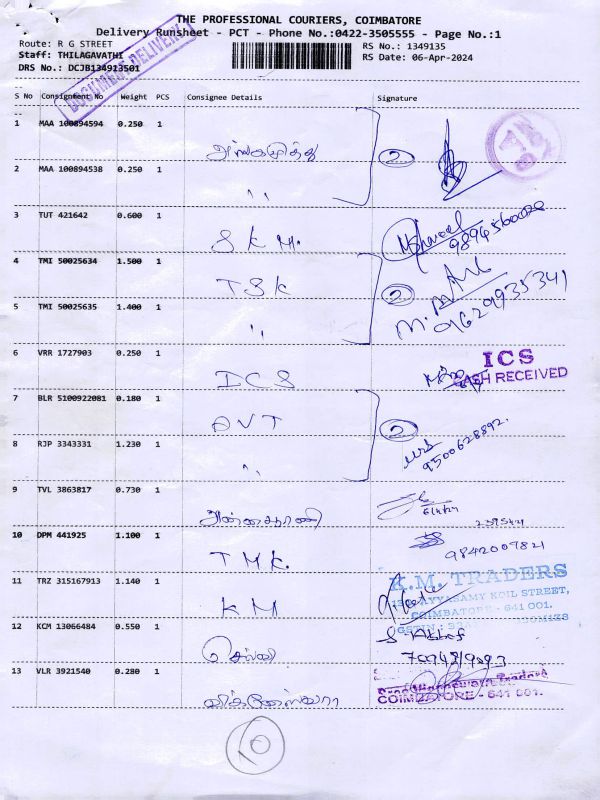 THE PROFESSIONAL COURIERS, COIMBATORE
Delivery Runsheet - PCT - Phone No.:0422-3505555 - Page No.:1
Route: R G STREET
RS No.: 1349135
Staff: THILAGAVATHI
RS Date: 06-Apr-2024
DRS No.: DCJB134913501
DOCUMENT DELIVERY
S No Consignment No Weight PCS Consignee Details Signature
1 MAA 100894594 0.250 1 அங்காமுத்து 2
2 MAA 100894538 0.250 1 ''
3 TUT 421642 0.600 1 S K M. 9894560028
4 TMI 50025634 1.500 1 TSK 2
5 TMI 50025635 1.400 1 '' 9629935341
6 VRR 1727903 0.250 1 DCS ICS
CASH RECEIVED
7 BLR 5100922081 0.180 1 AVT 2
8 RJP 3343331 1.230 1 '' 9500628892.
9 TVL 3863817 0.730 1 6/4/24
10 DPM 441925 1.100 1 T M K. 9842007821
11 TRZ 315167913 1.140 1 K M K.M. TRADERS
AYYASAMY KOIL STREET,
COIMBATORE - 641 001.
12 KCM 13066484 0.550 1 செல்வி
13 VLR 3921540 0.280 1 விக்னேஸ்வரா
COIMBATORE - 641 001.
10